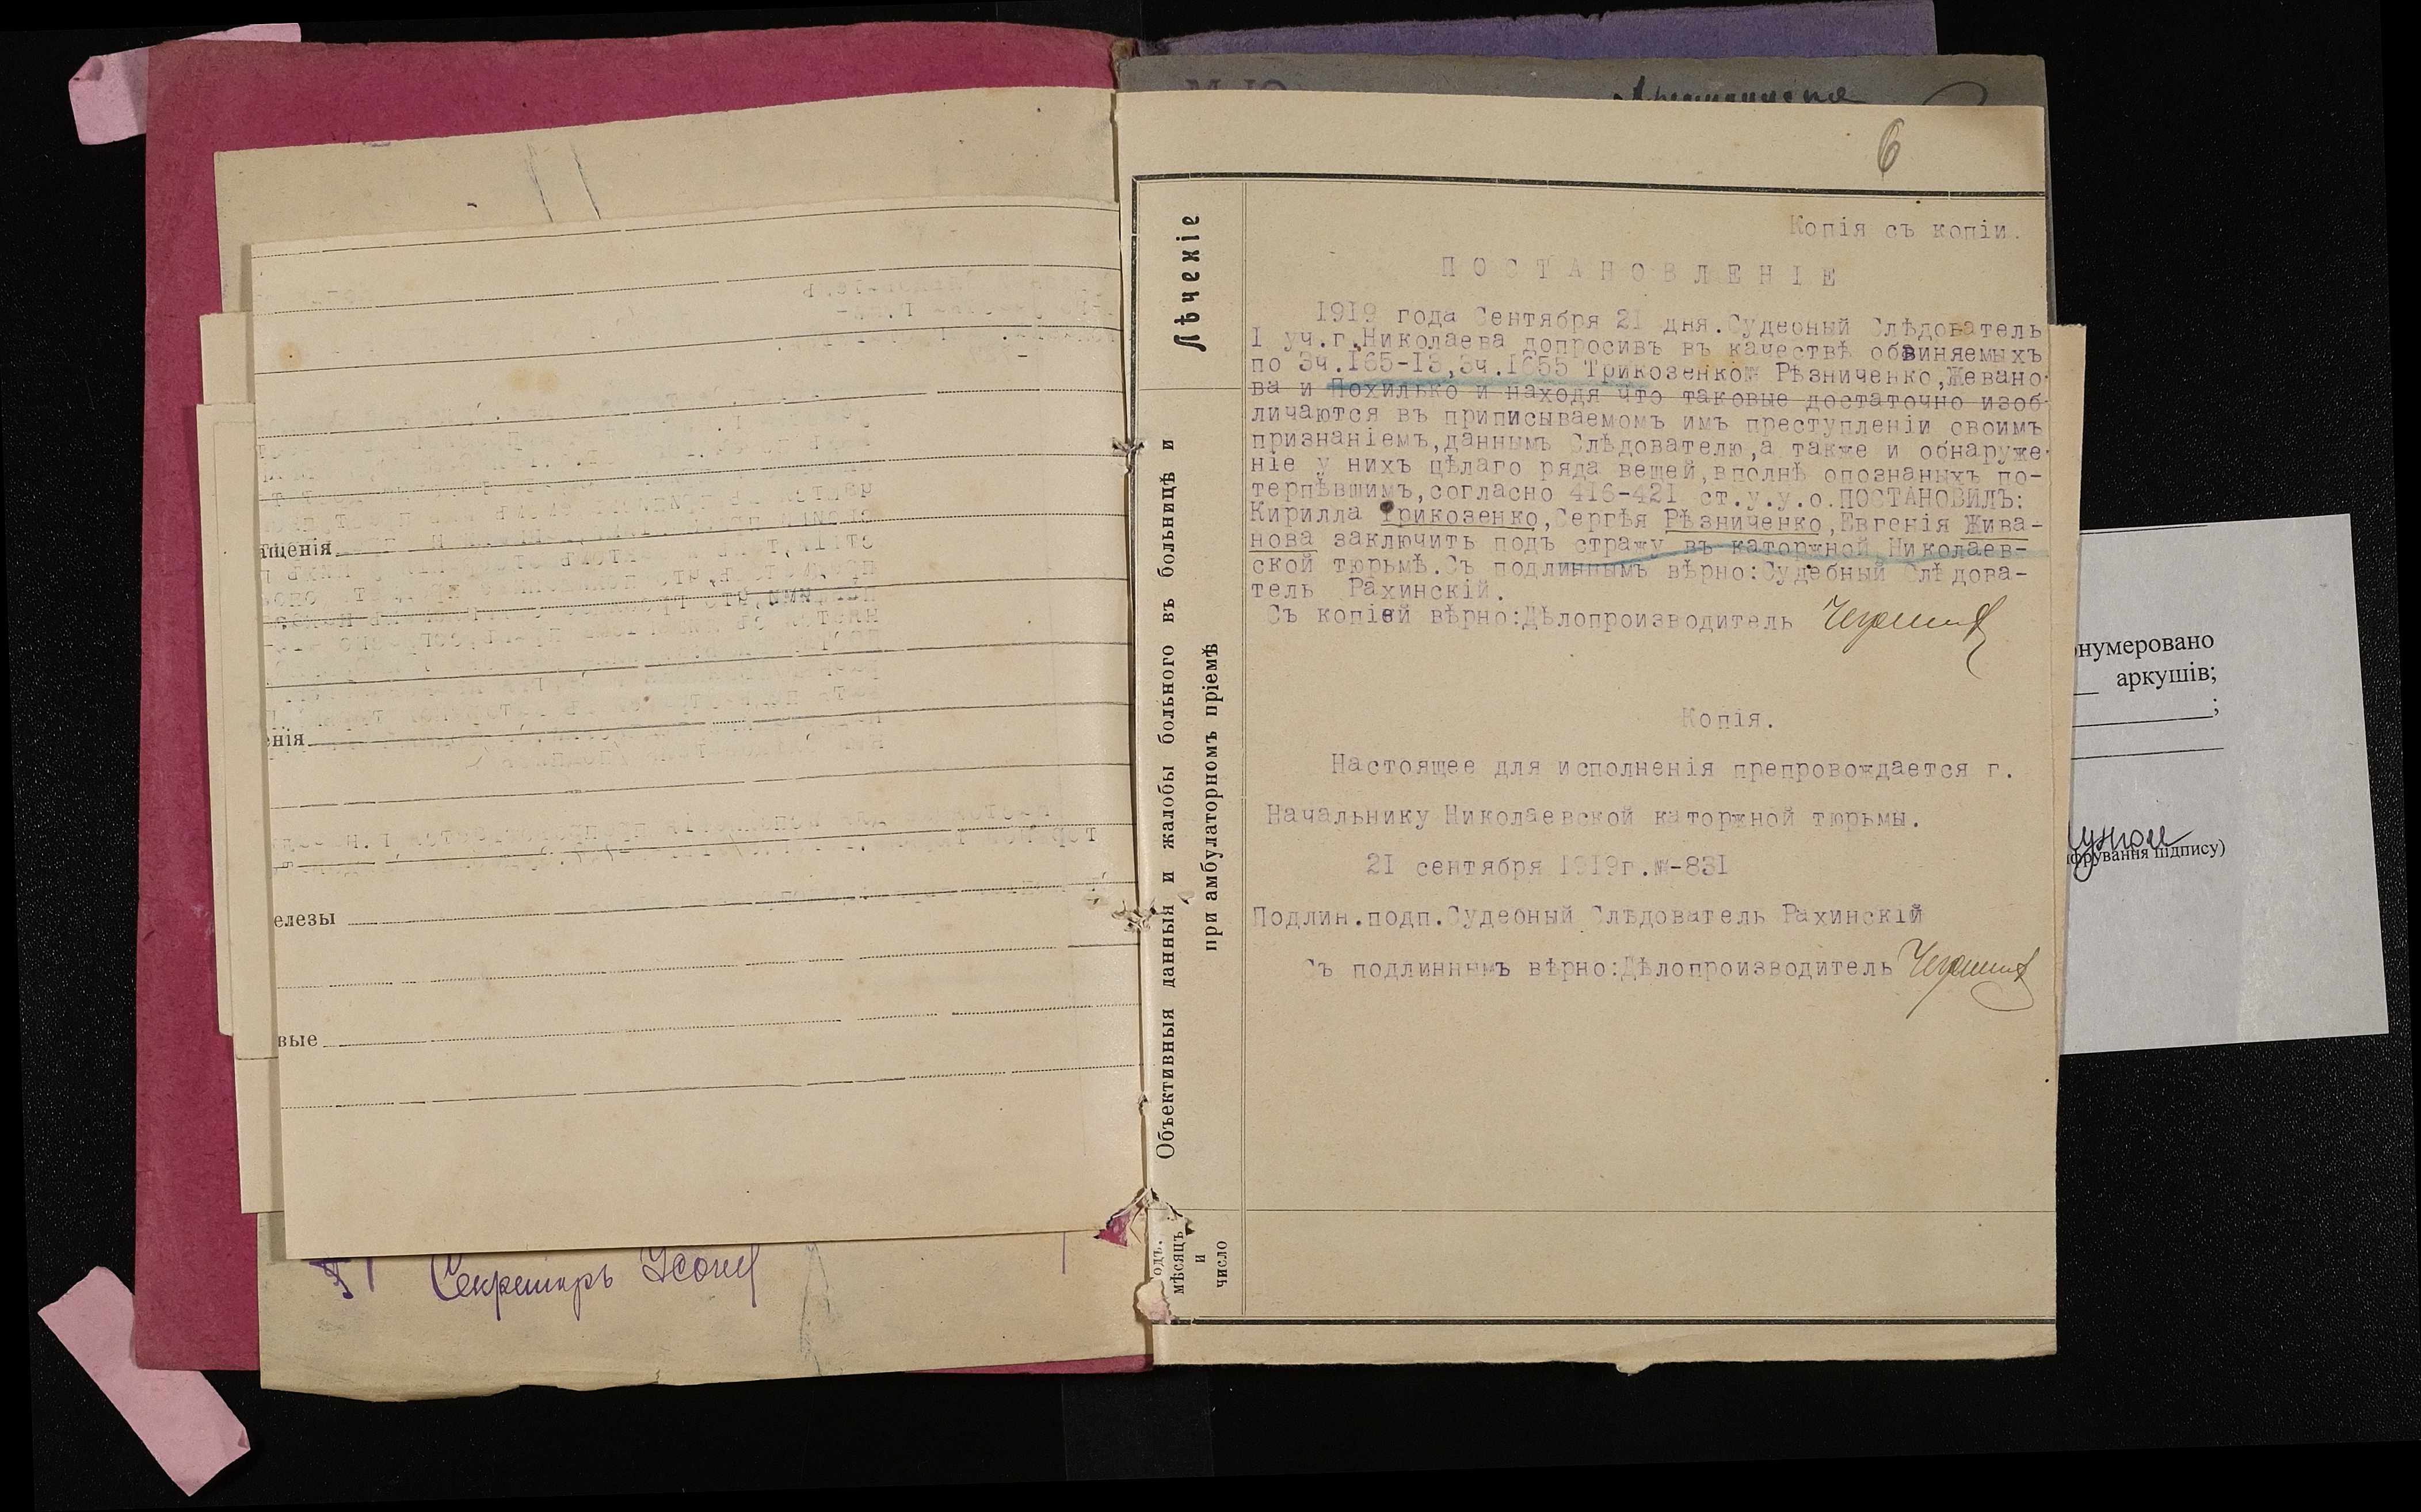 ащенія
енія
елезы
вые
Секретарь
6
Лѣченіе
Объективныя данныя и жалобы больного въ больницѣ и
при амбулаторномъ пріемѣ
одъ.
мѣсяцъ
и
число
Копія съ копіи.
ПОСТАНОВЛЕНІЕ
1919 года Сентября 21 дня.Судебный Слѣдователь
I уч.г.Николаева допросивъ въ качествѣ обвиняемыхъ
по 3ч.165-13,3ч.1655 Трикозенком Рѣзниченко,Жевано-
ва и Похилько и находя что таковые достаточно изоб-
личаются въ приписываемомъ имъ преступленіи своимъ
признаніемъ,даннымъ Слѣдователю,а также и обнаруже-
ніе у нихъ цѣлаго ряда вещей,вполнѣ опознаныхъ по-
терпѣвшимъ,согласно 416-421 ст.у.у.о.ПОСТАНОВИЛЪ:
Кирилла Трикозенко,Сергѣя Рѣзниченко,Евгенія Жива-
нова заключить подъ стражу въ каторжной Николаев-
ской тюрьмѣ.Съ подлиннымъ вѣрно:Судебный Слѣдова-
тель Рахинскій.
Съ копіей вѣрно:Дѣлопроизводитель
Копія.
Настоящее для исполненія препровождается г.
Начальнику Николаевской каторжной тюрьмы.
21 сентября 1919г.№-831
Подлин.подп.Судебный Слѣдователь Рахинскій
Съ подлиннымъ вѣрно:Дѣлопроизводитель
онумеровано
аркушів;
;
ифрування підпису)